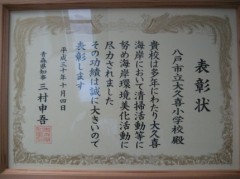 表彰状
八戸市立大久喜小学校殿
貴校は多年にわたり大久喜
海岸において清掃活動等に
努め海岸環境美化活動に
尽力されました
その功績は誠に大きいので
表彰します
平成三十年十月四日
青森県知事 三村申吾